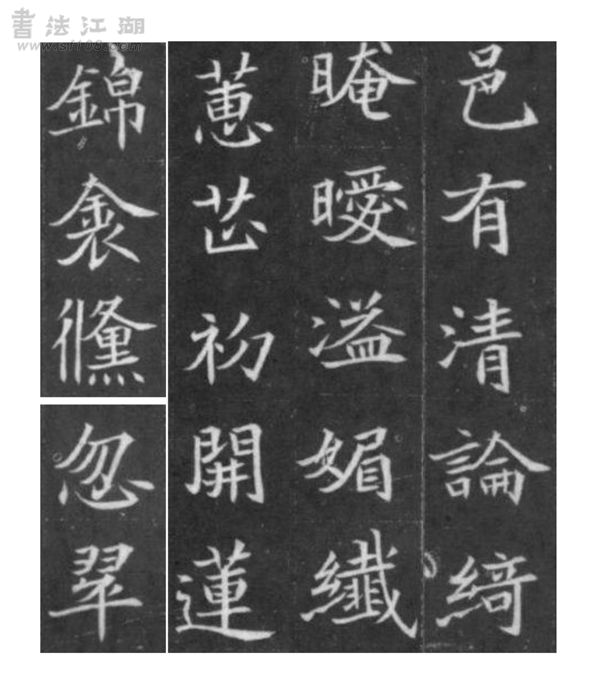 書法江湖
www.sf108.com
邑有清論綺
晻曖溢媚纖
蕙芷初開蓮
錦衾儵忽翠